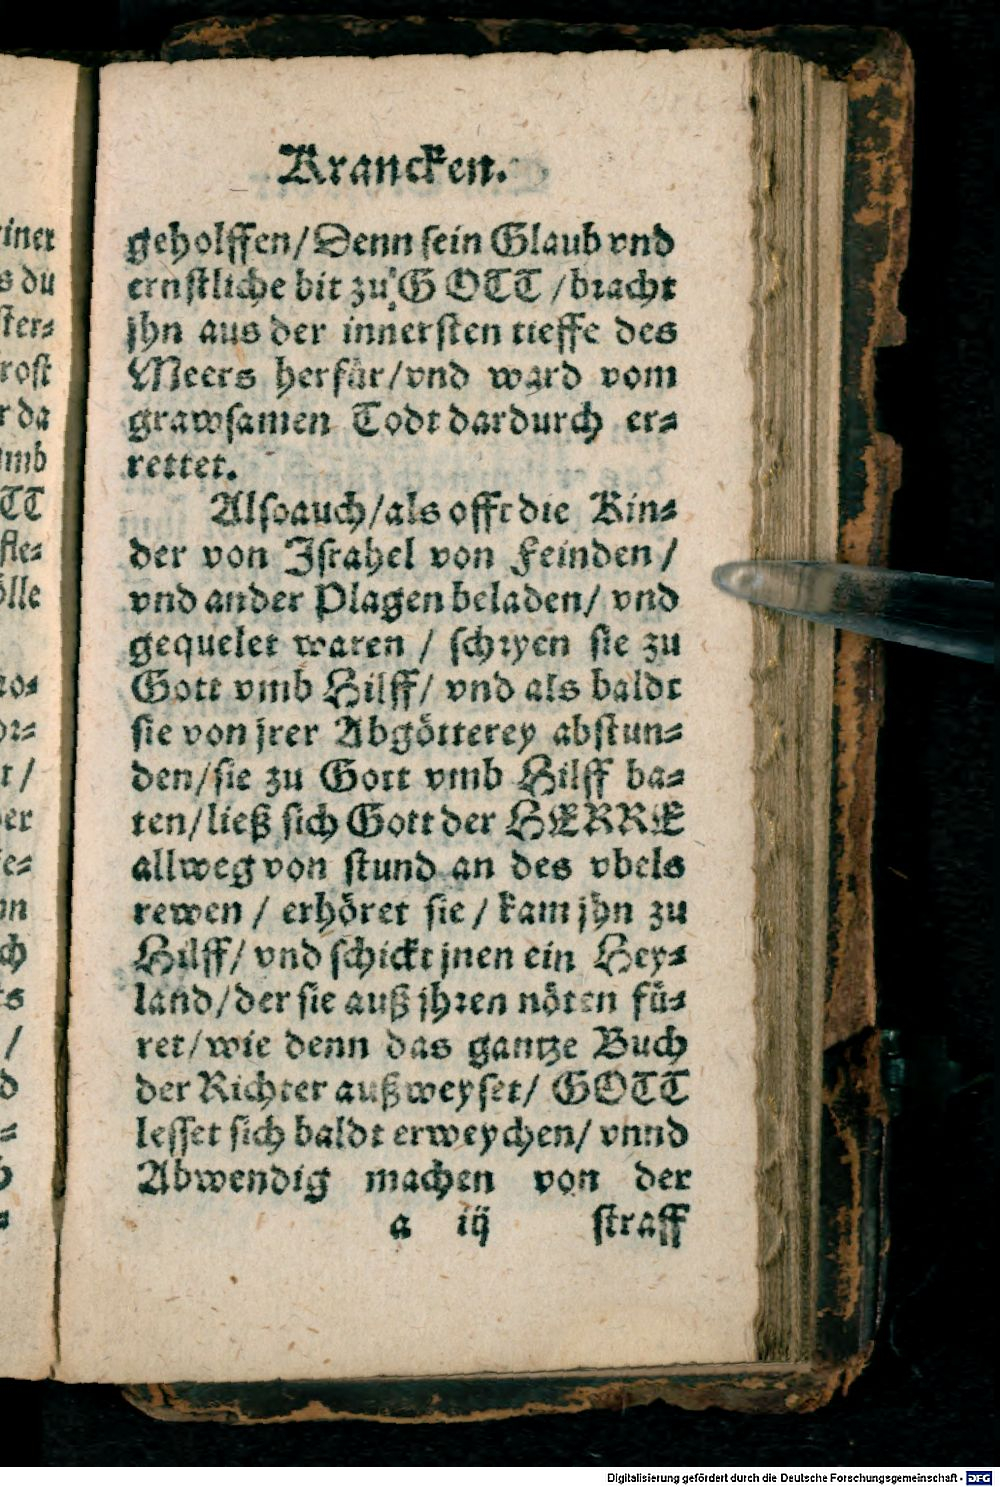 Krancken.
geholffen/Denn sein Glaub vnd
ernstliche bit zu GOTT /bracht
jhn aus der innersten tieffe des
Meers herfür/vnd ward vom
grawsamen Todt dardurch er⸗
rettet.
Also auch/als offt die Kin⸗
der von Israhel von Feinden /
vnd ander Plagen beladen/ vnd
gequelet waren / schryen sie zu
Gott vmb Hilff/ vnd als baldt
sie von jrer Abgötterey abstun⸗
den/sie zu Gott vmb Hilff ba⸗
ten/ließ sich Gott der HERRE
allweg von stund an des vbels
rewen / erhöret sie / kam jhn zu
Hilff/ vnd schickt jnen ein Hey⸗
land/der sie auß jhren nöten fü⸗
ret/wie denn das gantze Buch
der Richter außweyset/ GOTT
lesset sich baldt erweychen/ vnnd
Abwendig machen von der
a iij straff
Digitalisierung gefördert durch die Deutsche Forschungsgemeinschaft - DFG